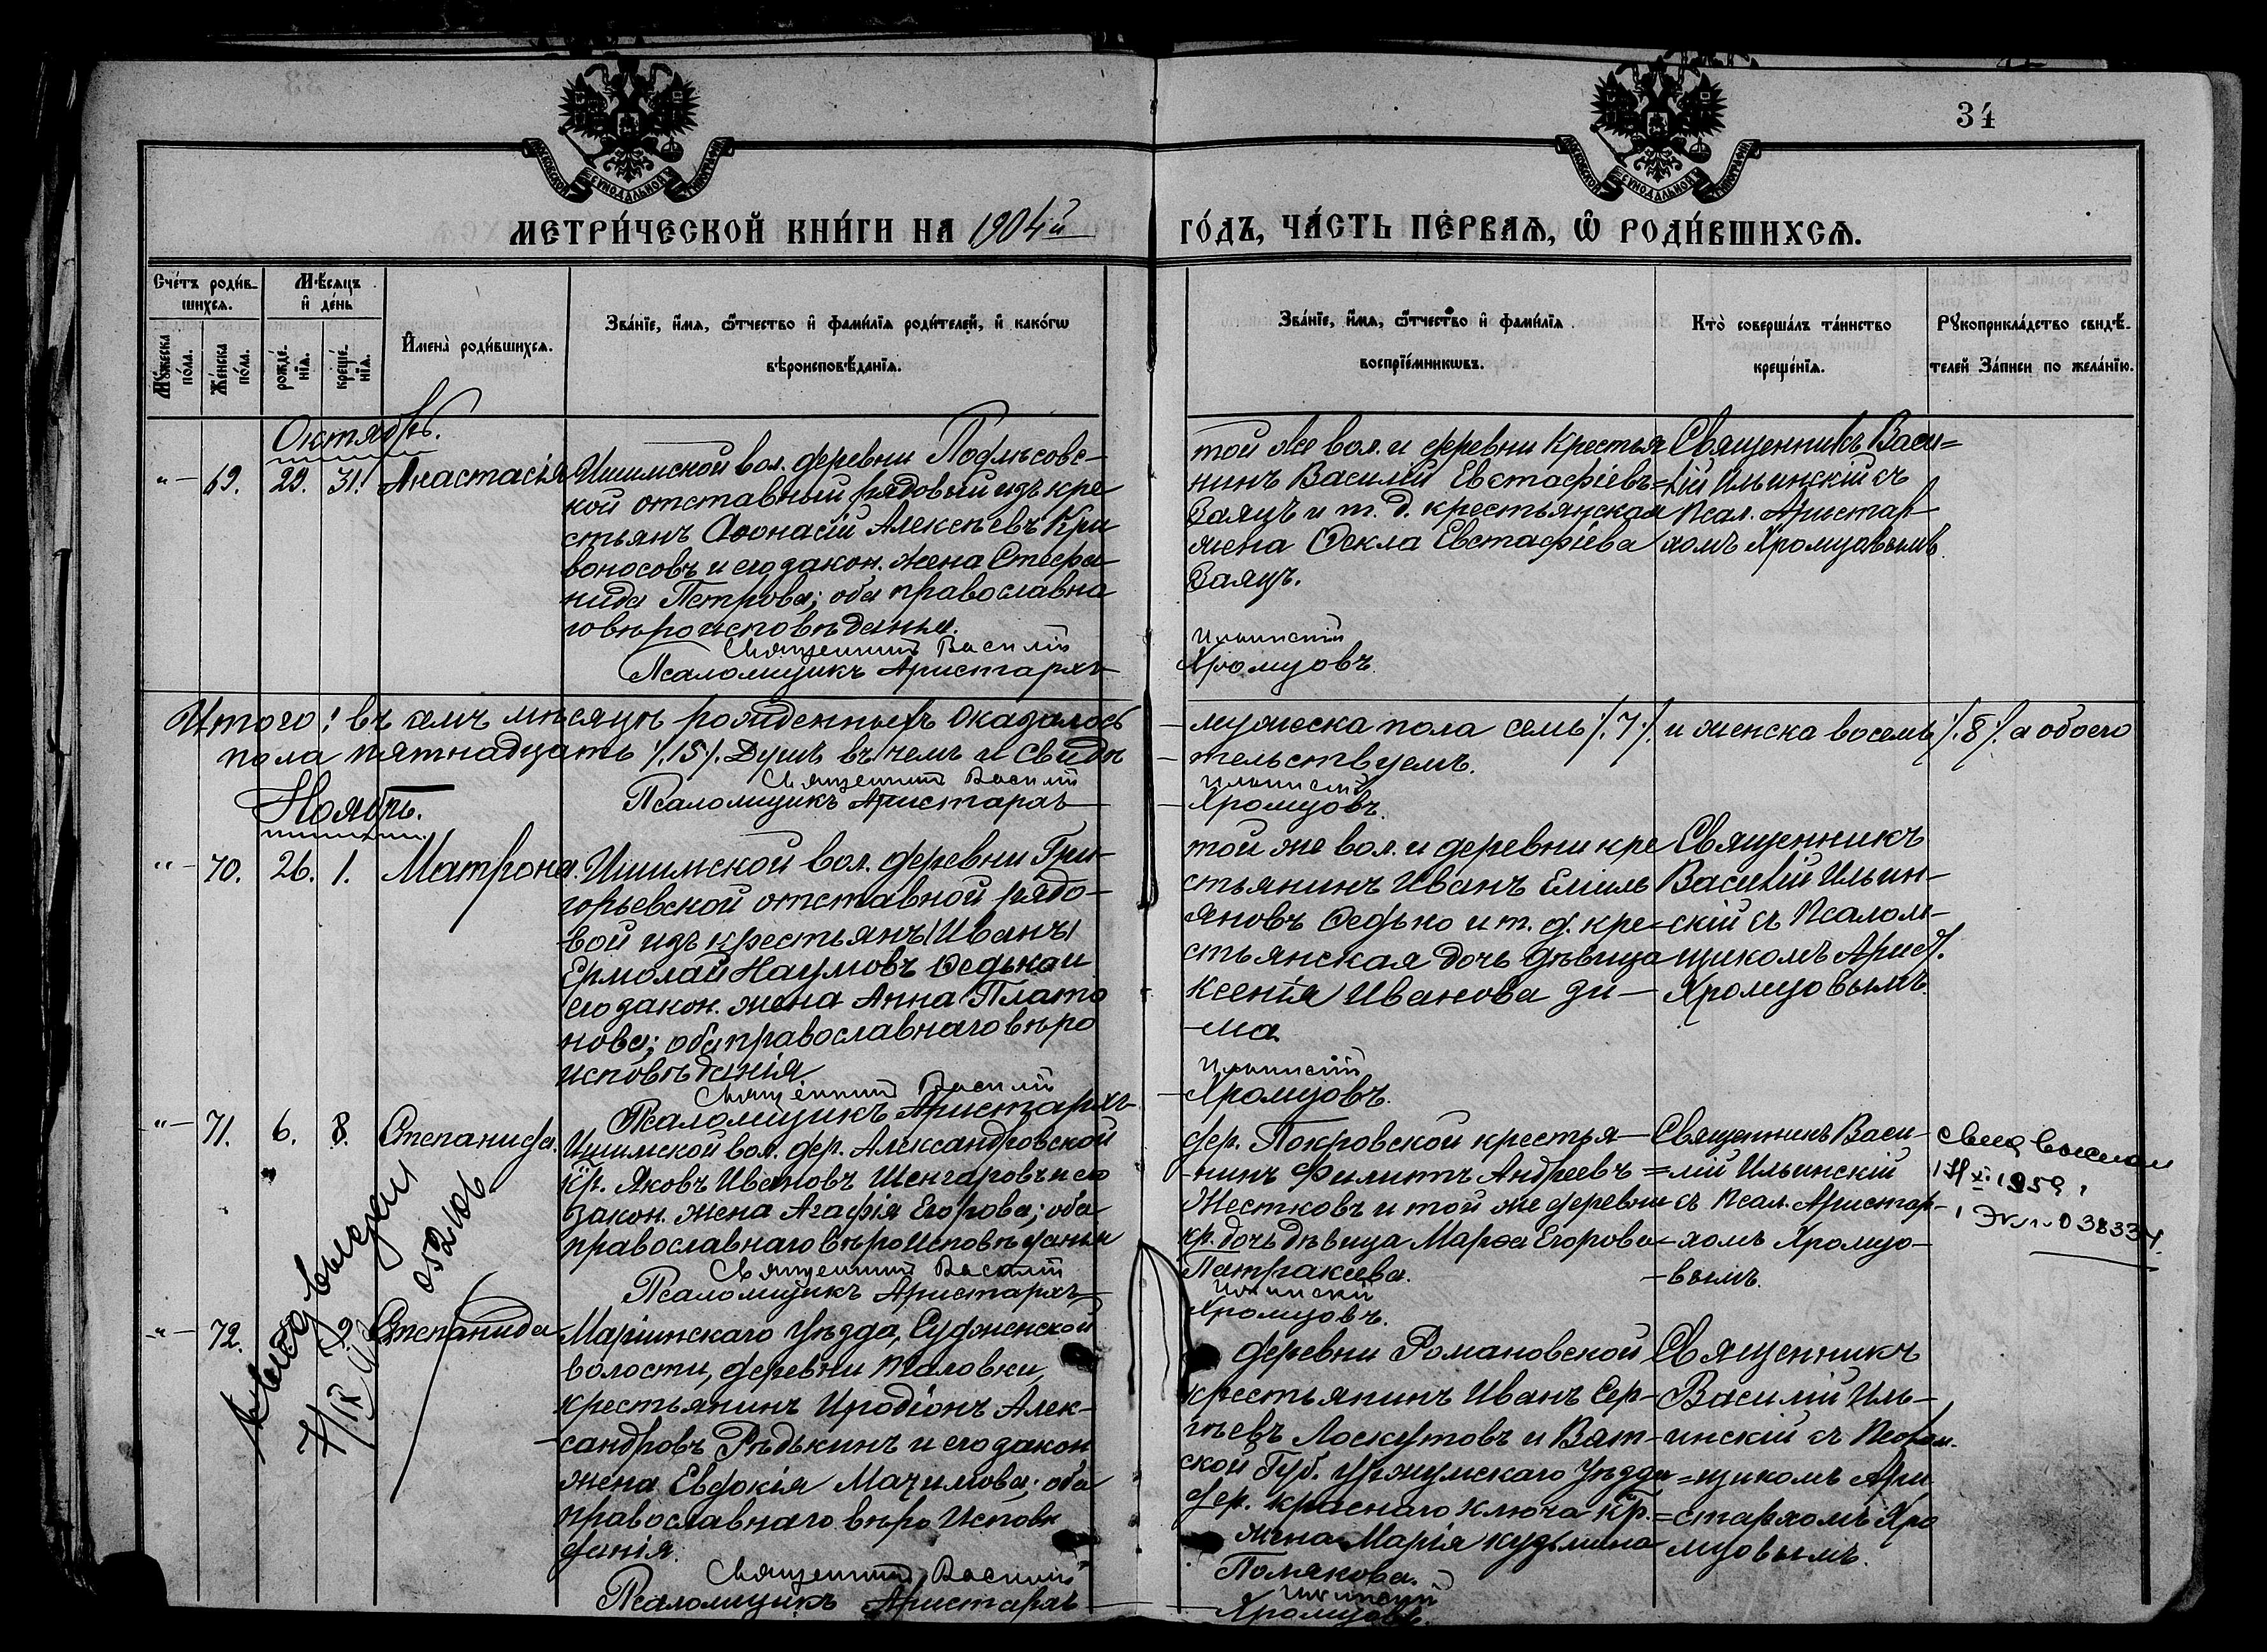 34
МОСКОВСКОЙ СѴНОДАЛЬНОЙ ТИПОГРАФІИ
МОСКОВСКОЙ СѴНОДАЛЬНОЙ ТИПОГРАФІИ
МЕТРИ́ЧЕСКОЙ КНИ́ГИ НА 1904й
ГО́ДЪ, ЧА́СТЬ ПЕ́РВАѦ, Ѡ РОДИ́ВШИХСѦ.
Сче́тъ роди́в-
шихсѧ.
Мѣ́сѧцъ
и҆ де́нь
Му́жеска по́ла.
Же́нска по́ла.
рожде́-
нїѧ.
креще́-
нїѧ.
И҆мена̀ роди́вшихсѧ.
Зва́нїе, и҆́мѧ, ѻ҆́тчество и҆ фамѝлїѧ роди́телей, и҆ како́гѡ
вѣроисповѣ́данїѧ.
Зва́нїе, и҆́мѧ, ѻ҆́тчество и҆ фамѝлїѧ
воспрїе́мникѡвъ.
Кто̀ соверша́лъ та́инство
креще́нїѧ.
Рꙋкоприкла́дство свидѣ́-
телей за́писи по жела́нїю.
Октябрь.
"— 69. 29. 31. Анастасія
Ишимской вол. деревни Подлѣсовс-
кой отставный рядовый изъ кре
стьянъ Аѳонасій Алексѣевъ Кри
воносовъ и его закон. жена Стефа-
нида Петрова; оба православна
го вѣроисповѣданья.
Священникъ Василій
Псаломщикъ Аристархъ
той же вол. и деревни крестья
нинъ Василій Евстафіевъ
Заяцъ и т. д. крестьянская
жена Ѳекла Евстафіева
Заяцъ.
Ильинскій
Хромцовъ.
Священникъ Васи=
лій Ильинскій съ
псал. Аристар-
хомъ Хромцовымъ.
Итого: въ семъ мѣсяцѣ рожденныхъ оказалось — мужеска пола семь /.7/. и женска восемь /.8/. а обоего
пола пятнадцать /.15/. душъ въ чемъ и свидѣ — тельствуемъ.
Священникъ Василій Ильинскій
Псаломщикъ Аристархъ — Хромцовъ.
Ноябрь.
"— 70. 26. 1. Матрона.
Ишимской вол. деревни Гри-
горьевской отставной рядо-
вой изъ крестьянъ /Иванъ/
Ермолай Наумовъ Ѳедько и
его закон. жена Анна Плато
нова; оба православнаго вѣро
исповѣданія
Священникъ Василій
Псаломщикъ Аристархъ
той же вол. и деревни кре
стьянинъ Иванъ Емель
яновъ Ѳедько и т. д. кре-
стьянская дочь дѣвица
Ксенія Иванова Зи-
-ма
Ильинскій
Хромцовъ.
Священникъ
Василій Ильин-
скій съ псалом-
щикомъ Арист.
Хромцовымъ.
"— 71. 6. 8. Степанида.
Ишимской вол. дер. Александровской
кр. Яковъ Ивановъ Шенгаровъ и его
закон. жена Агафія Егорова; оба
православнаго вѣроисповѣданья
Священникъ Василій
Псаломщикъ Аристархъ
дер. Покровской крестья-
нинъ Филиппъ Андреевъ
Жестковъ и той же деревни
кр. дочь дѣвица Марѳа Егорова
Патракеева.
Ильинскій
Хромцовъ.
Священникъ Васи-
лій Ильинскій
съ псал. Аристар-
хомъ Хромцо-
-вымъ.
1959
"— 72. Степанида
Маріинскаго уѣзда, Судженской
волости, деревни Таловки,
крестьянинъ Иродіонъ Алек-
сандровъ Рѣдькинъ и его закон
жена Евдокія; оба
православнаго вѣро исповѣ
данія.
Священникъ Василій
Псаломщикъ Аристархъ
деревни Романовской
крестьянинъ Иванъ Сер-
гѣевъ Лоскутовъ и Вят-
ской губ. Уржумскаго уѣзда
дер. Краснаго Ключа кр.
жена Марія Кузьмина
Полякова.
Ильинскій
Хромцовъ.
Священникъ
Василій Иль-
инскій съ псалом-
щикомъ Ари
стархомъ Хро
мцовымъ.